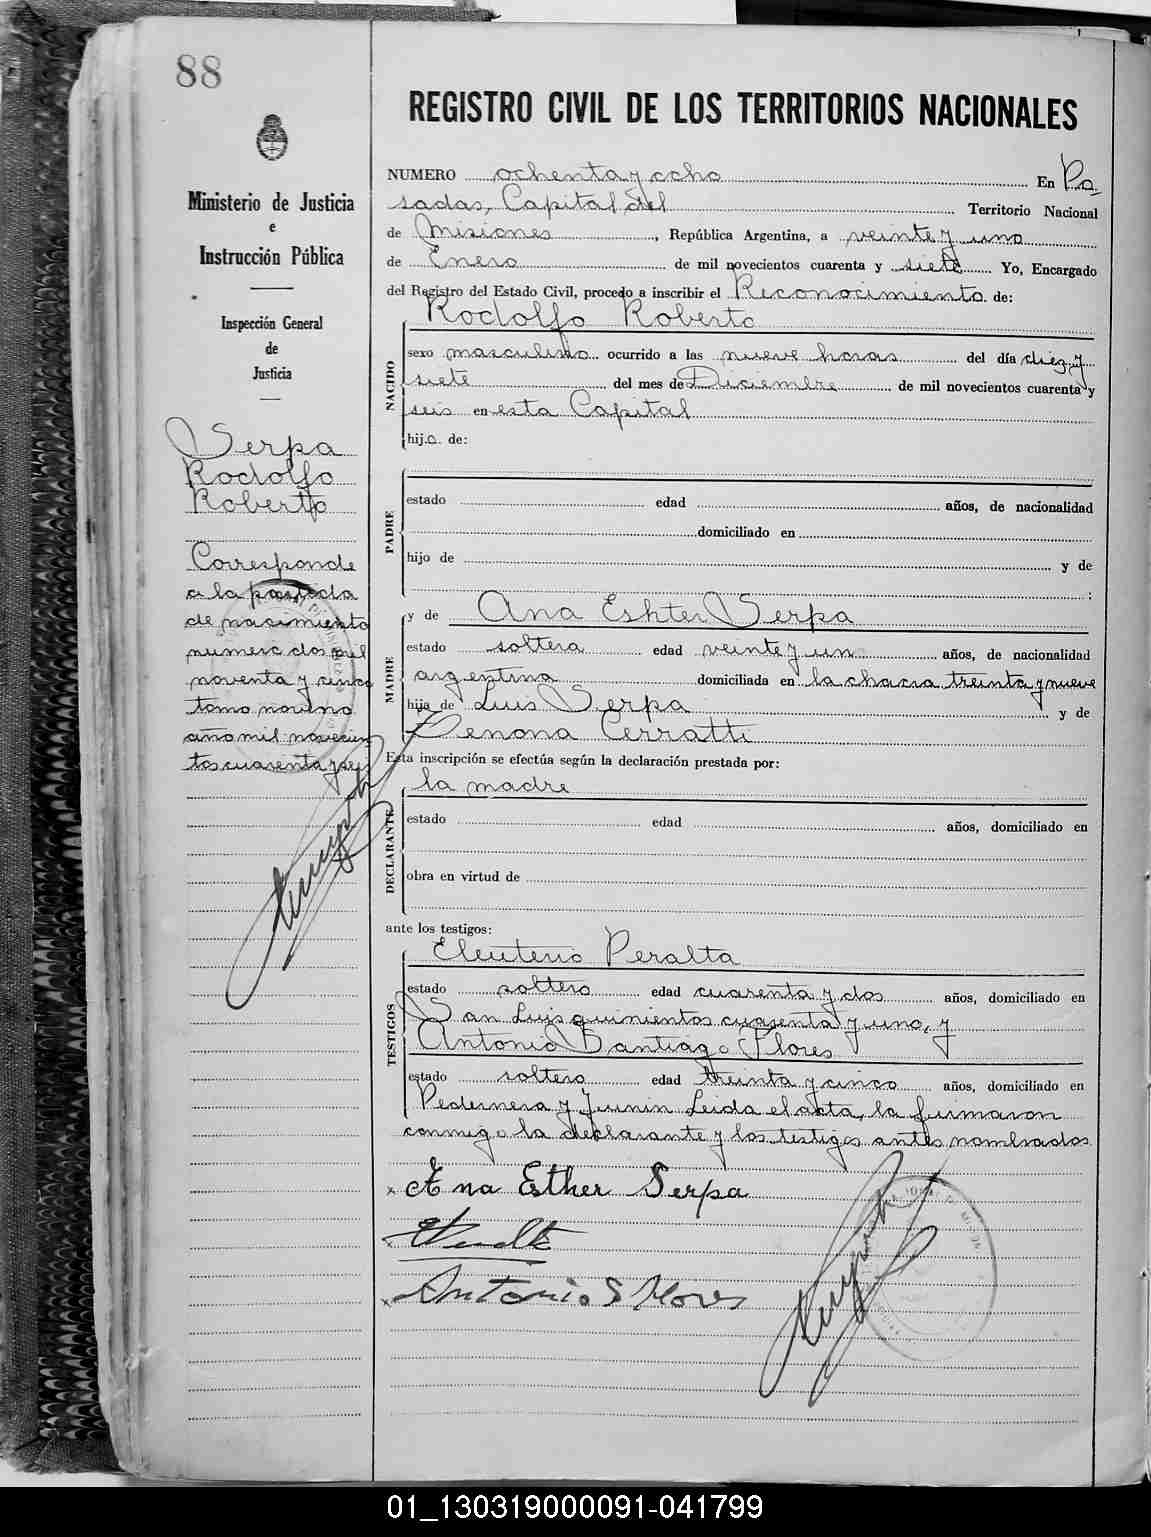 88
Ministerio de Justicia
e
Instrucción Pública
Inspección General
de
Justicia
Serpa
Rodolfo
Roberto
Corresponde
a la partida
de nacimiento
numero dos mil
noventa y cinco
tomo noveno
año mil novecien
tos cuarenta y seis
REGISTRO CIVIL DE LOS TERRITORIOS NACIONALES
NUMERO ochenta y ocho En Po
sadas, Capital del Territorio Nacional
de Misiones, República Argentina, a veinte y uno
de Enero de mil novecientos cuarenta y siete Yo, Encargado
del Registro del Estado Civil, procedo a inscribir el Reconocimiento de:
Rodolfo Roberto
NACIDO
sexo masculino ocurrido a las nueve horas del día diez y
siete del mes de Diciembre de mil novecientos cuarenta y
seis en esta Capital
hijo de:
PADRE
estado edad años, de nacionalidad
domiciliado en
hijo de y de
:
MADRE
y de Ana Eshter Serpa
estado soltera edad veinte y un años, de nacionalidad
argentina domiciliada en la chacra treinta y nueve
hija de Luis Serpa y de
Zenona Cerratti
Esta inscripción se efectúa según la declaración prestada por:
la madre
DECLARANTE
estado edad años, domiciliado en
obra en virtud de
ante los testigos:
Eleuterio Peralta
TESTIGOS
estado soltero edad cuarenta y dos años, domiciliado en
San Luis quinientos cuarenta y uno, y
Antonio Santiago Flores
estado soltero edad treinta y cinco años, domiciliado en
Pedernera y Junin Leida el acta, la firmaron
conmigo la declarante y los testigos antes nombrados
x Ana Esther Serpa
x Antonio S Flores
01_130319000091-041799